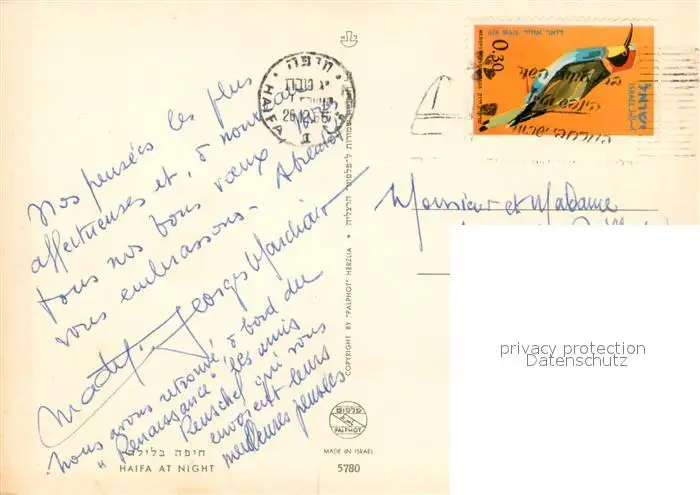 Nos pensées les plus
affectueuses et, à nouveau
tous nos bons vœux. Nous
vous embrassons. A bientôt
Georges Marchiair
nous avons retrouvé, à bord du
"Renaissance" les amis
Reuschel qui vous
envoient leurs
meilleures pensées
חיפה בלילה
HAIFA AT NIGHT
חיפה
HAIFA
COPYRIGHT BY "PALPHOT" HERZLIA
פלפוט
PALPHOT
MADE IN ISRAEL
5780
דואר אויר AIR MAIL
0.30
ישראל
ISRAEL
Monsieur et Madame
privacy protection
Datenschutz